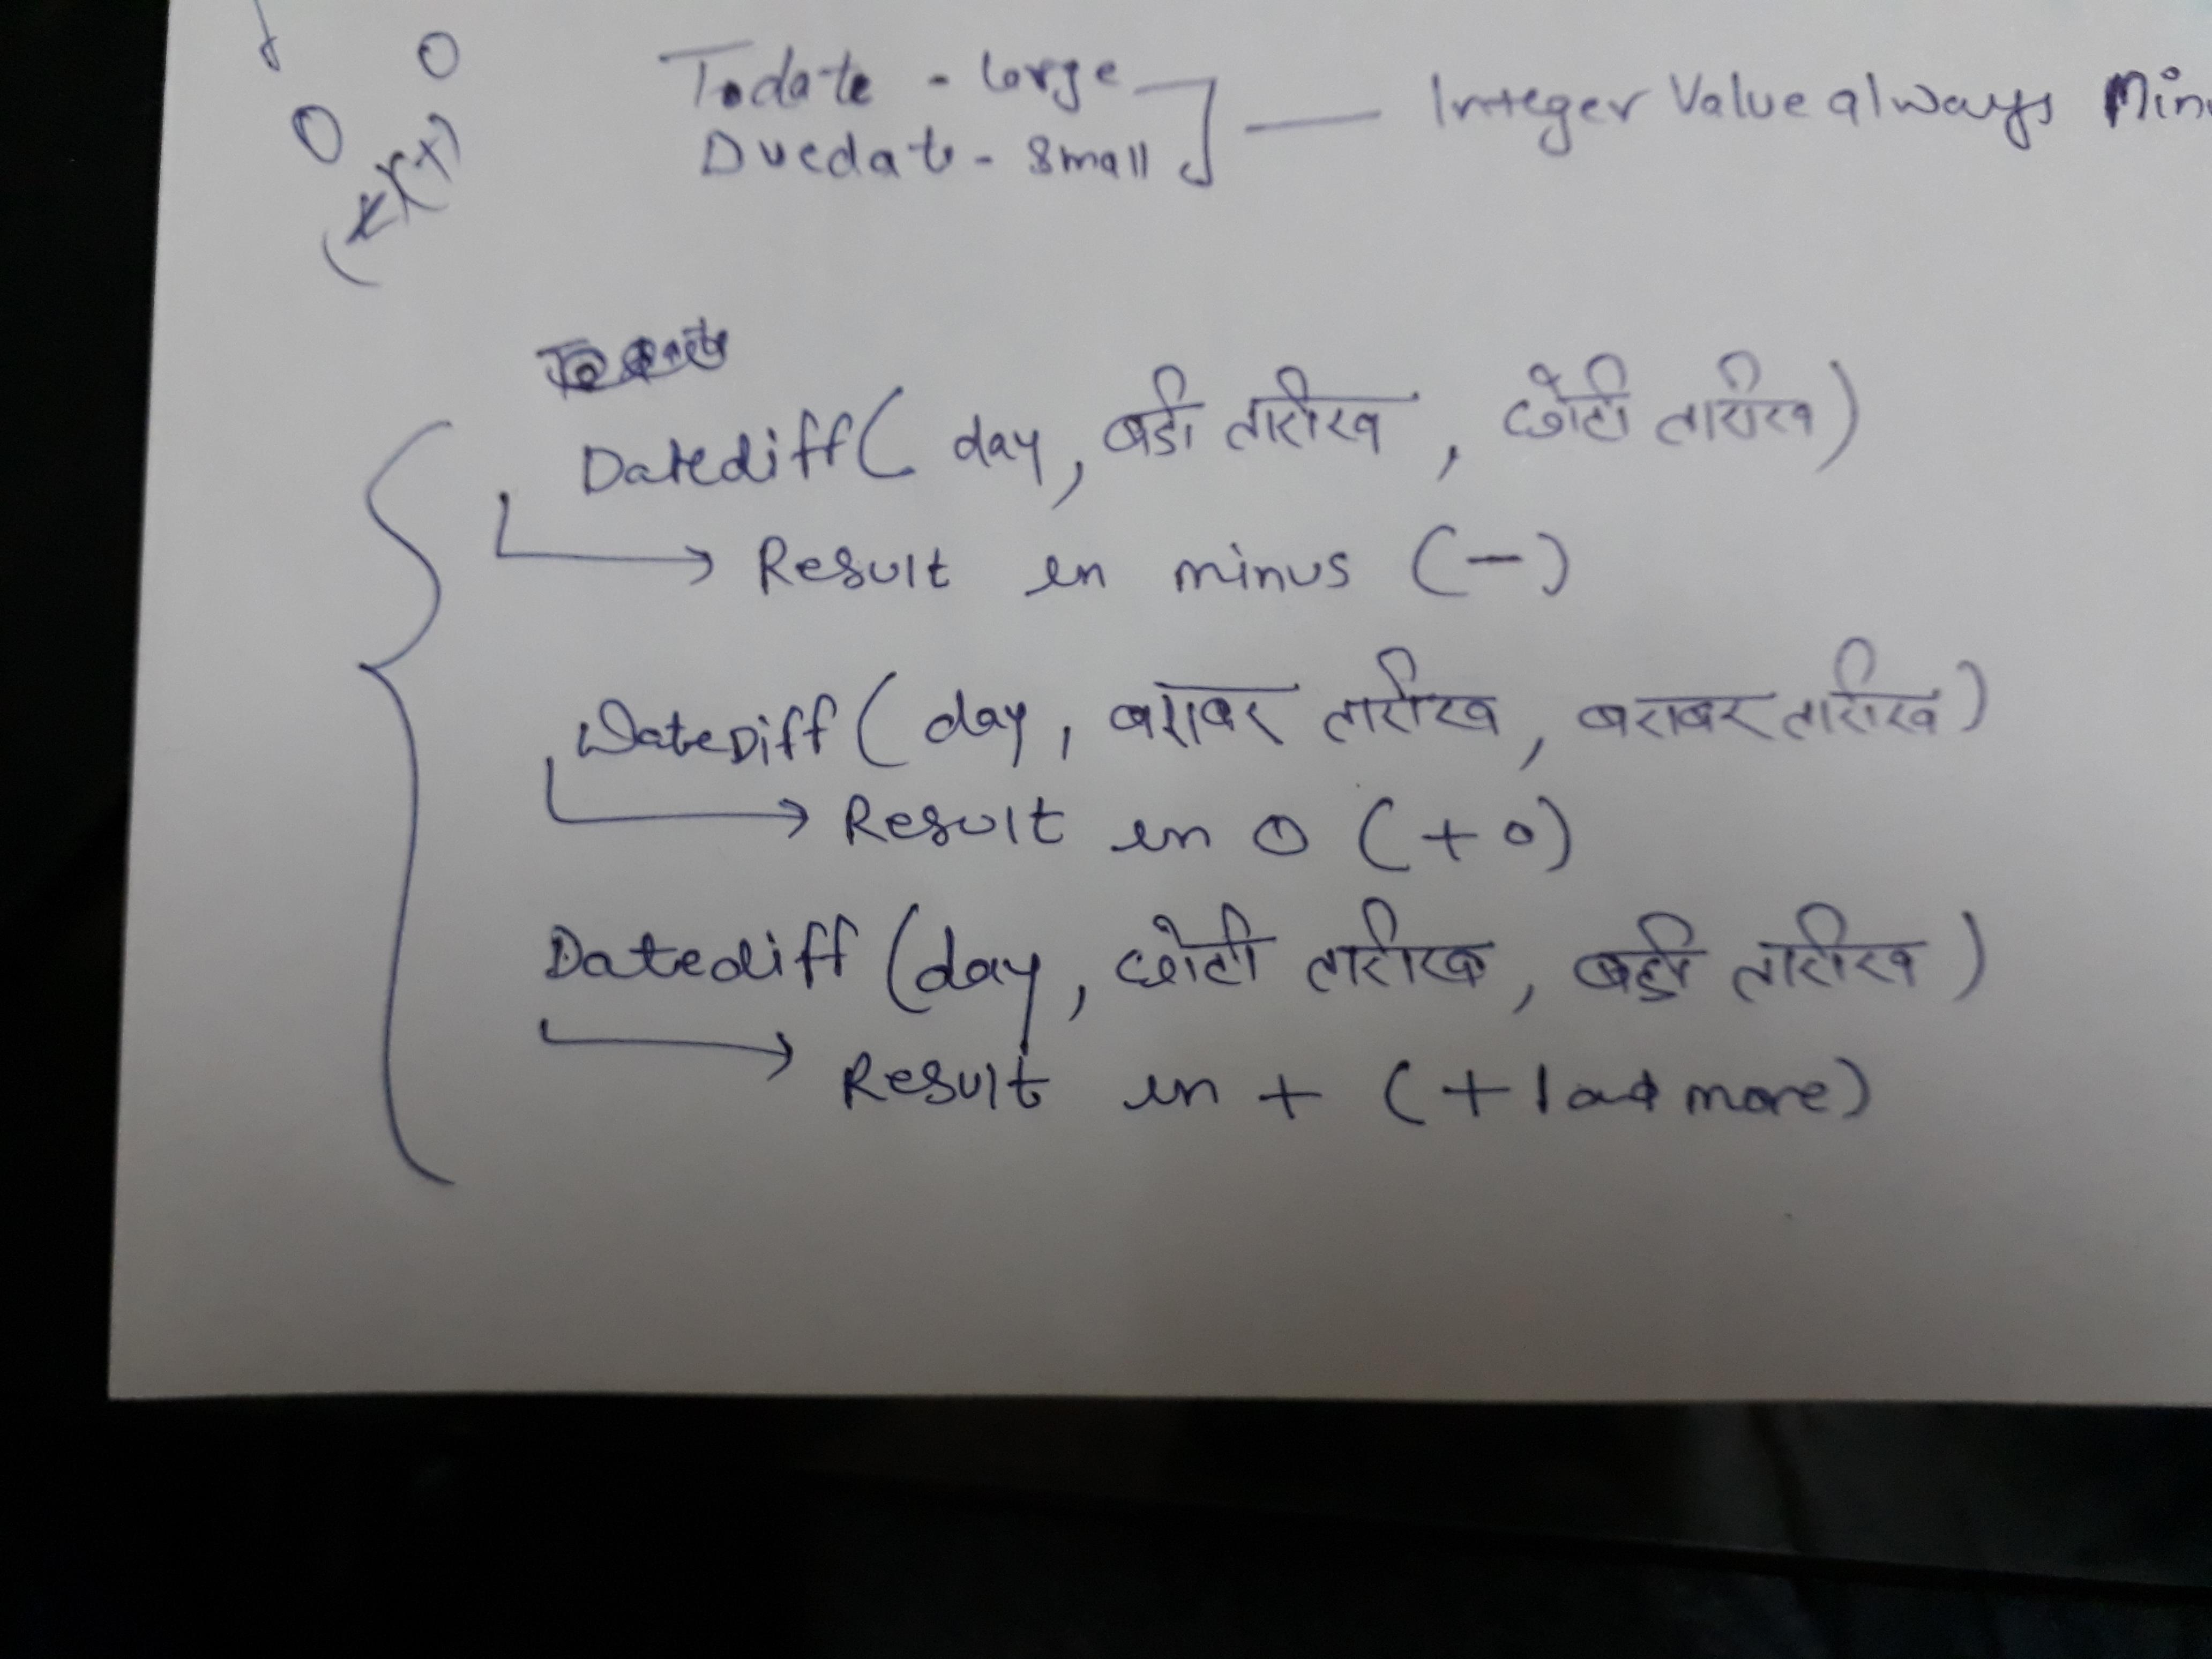 Todate - large
Duedate - small ] — Integer Value always
Datediff( day, बडी तारीख , छोटी तारीख)
→ Result in minus (-)
DateDiff( day, बराबर तारीख, बराबर तारीख)
→ Result in 0 (+0)
Datediff (day, छोटी तारीख, बडी तारीख)
→ Result in + (+1 and more)